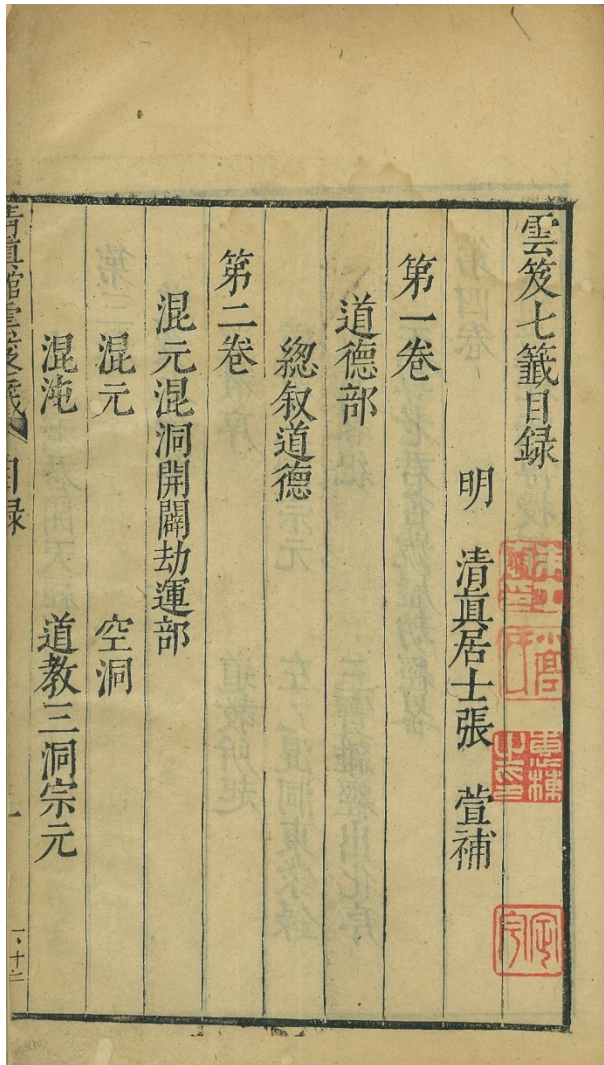 雲笈七籤目録
明 清眞居士張 萱補
第一卷
道德部
總叙道德
第二卷
混元混洞開闢劫運部
混元 空洞
混沌 道教三洞宗元
目録 一